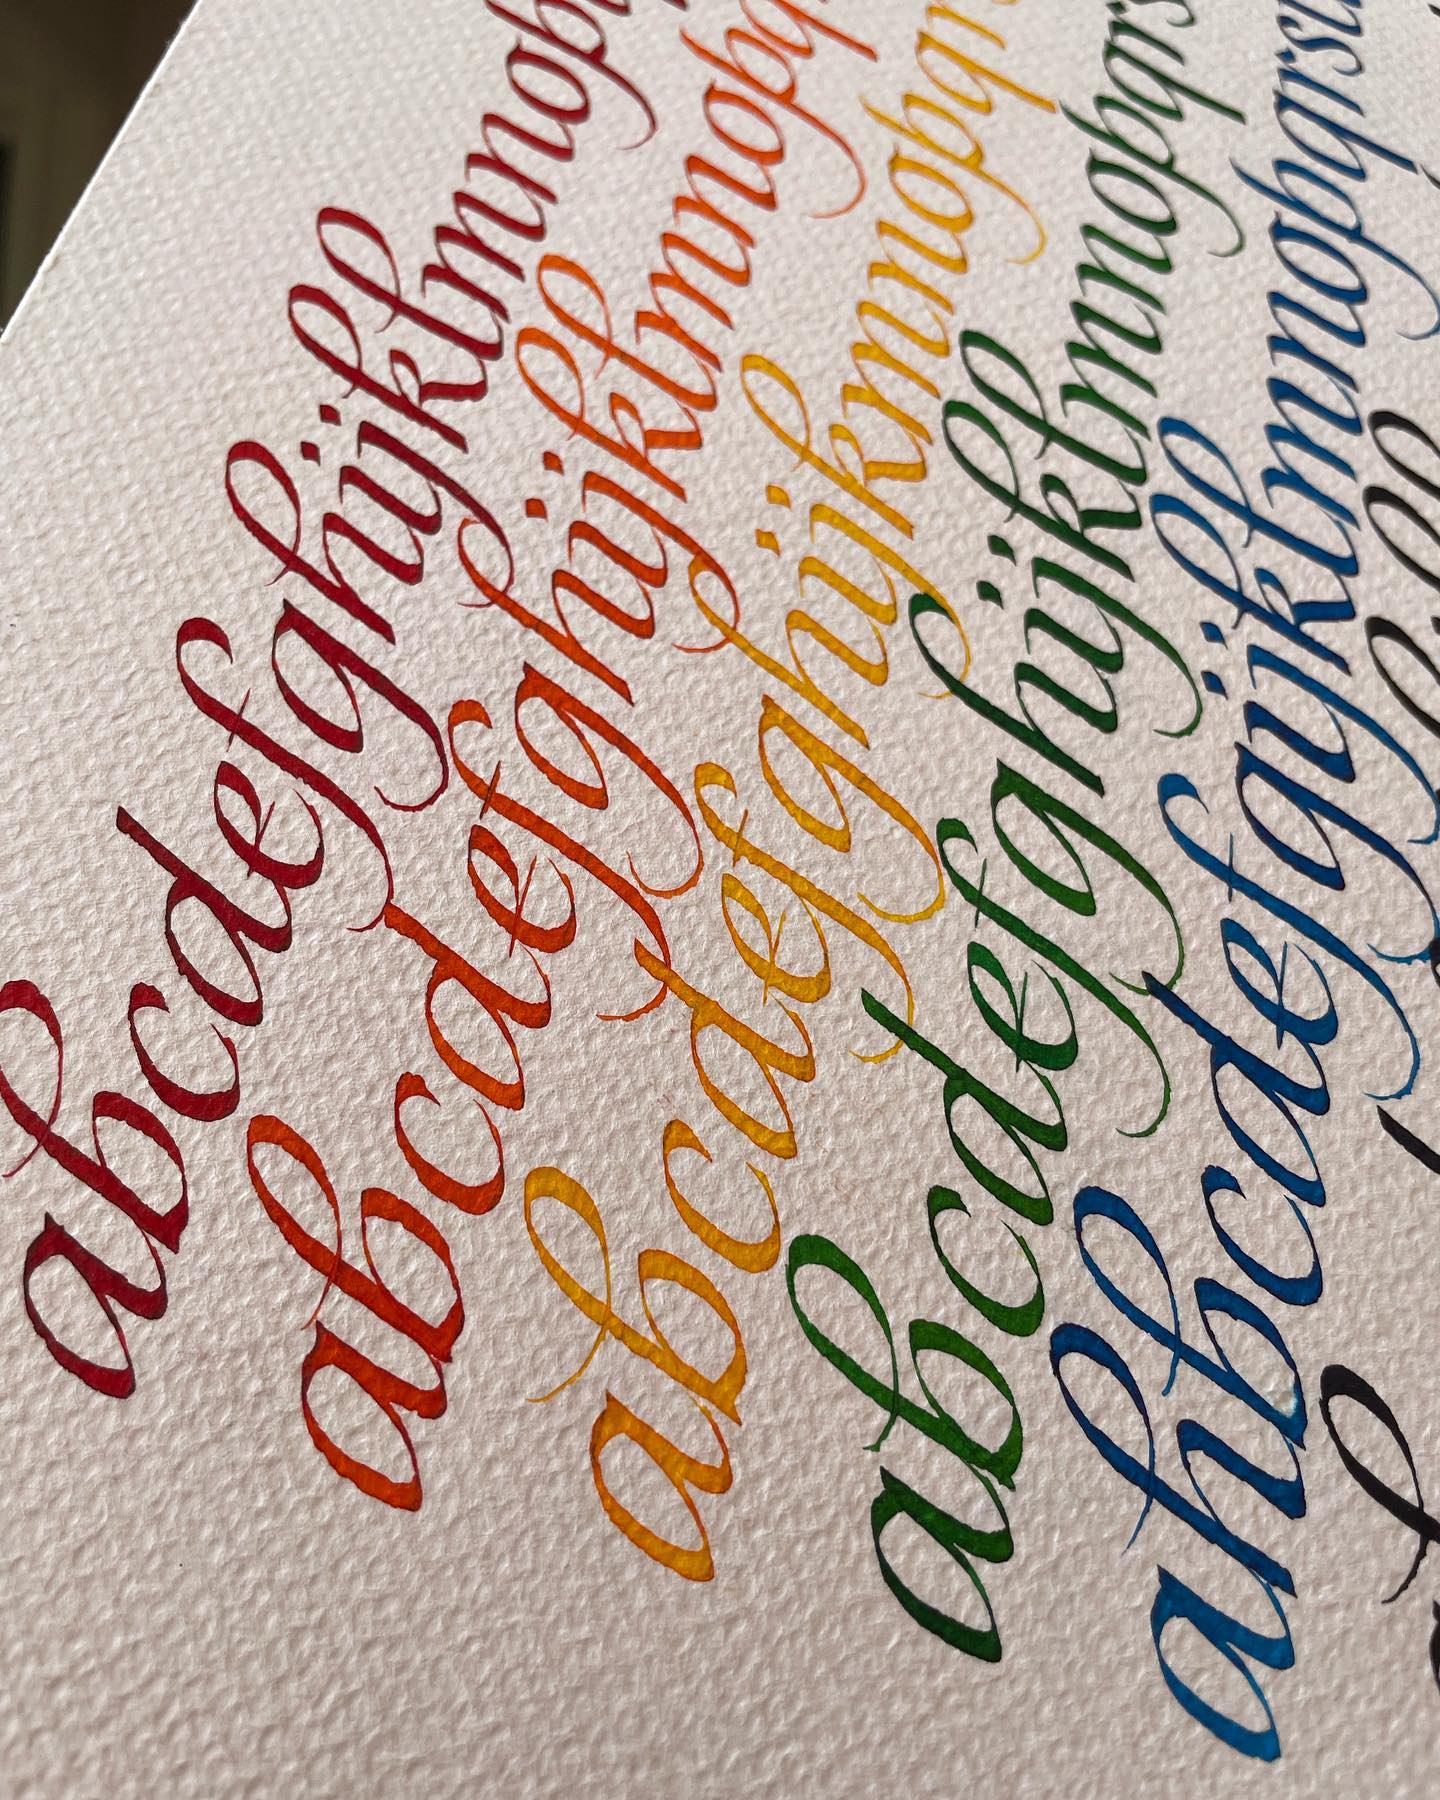 abcdefghijklmnop
abcdefghijklmnopq
abcdefghijkmnopqr
abcdefghijklmnopqrs
ahbcdefgijklmnopqrs